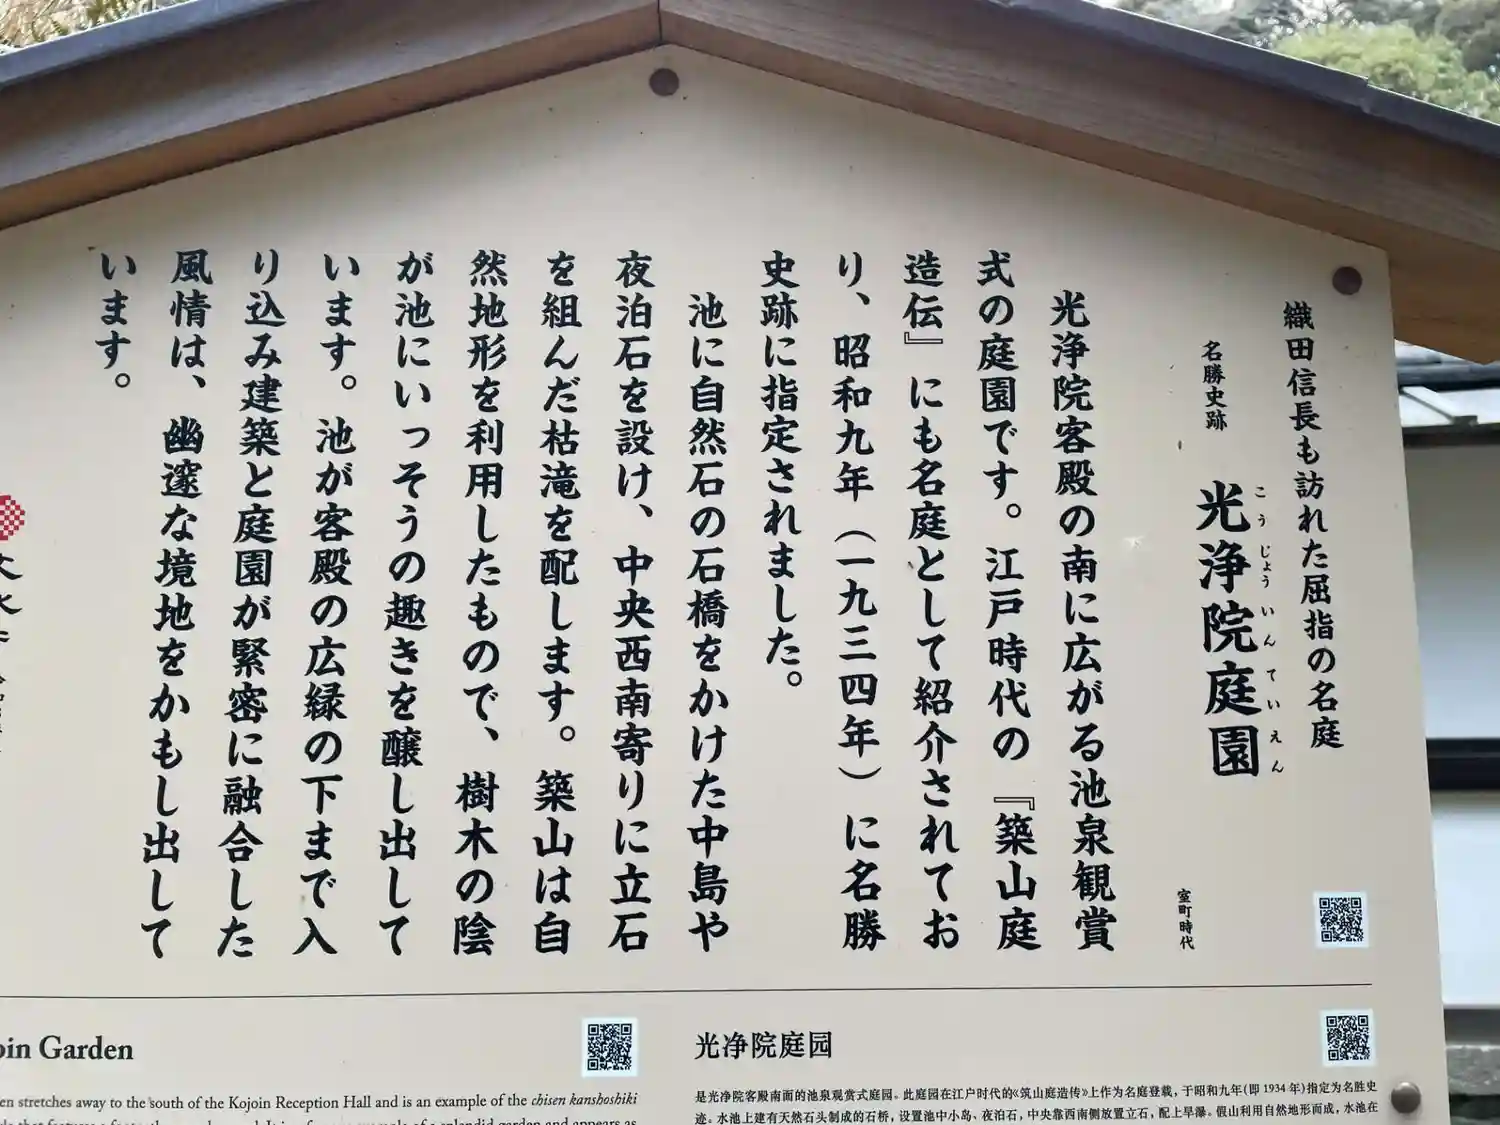 織田信長も訪れた屈指の名庭
名勝史跡 光浄院庭園
こうじょういんていえん
室町時代
光浄院客殿の南に広がる池泉観賞
式の庭園です。江戸時代の『築山庭
造伝』にも名庭として紹介されてお
り、昭和九年（一九三四年）に名勝
史跡に指定されました。
池に自然石の石橋をかけた中島や
夜泊石を設け、中央西南寄りに立石
を組んだ枯滝を配します。築山は自
然地形を利用したもので、樹木の陰
が池にいっそうの趣きを醸し出して
います。池が客殿の広縁の下まで入
り込み建築と庭園が緊密に融合した
風情は、幽邃な境地をかもし出して
います。
oin Garden
en stretches away to the south of the Kojoin Reception Hall and is an example of the chisen kanshoshiki
光净院庭园
是光净院客殿南面的池泉观赏式庭园。此庭园在江户时代的《筑山庭造传》上作为名庭登载，于昭和九年(即 1934 年)指定为名胜史
迹。水池上建有天然石头制成的石桥，设置池中小岛、夜泊石，中央靠西南侧放置立石，配上旱瀑。假山利用自然地形而成，水池在